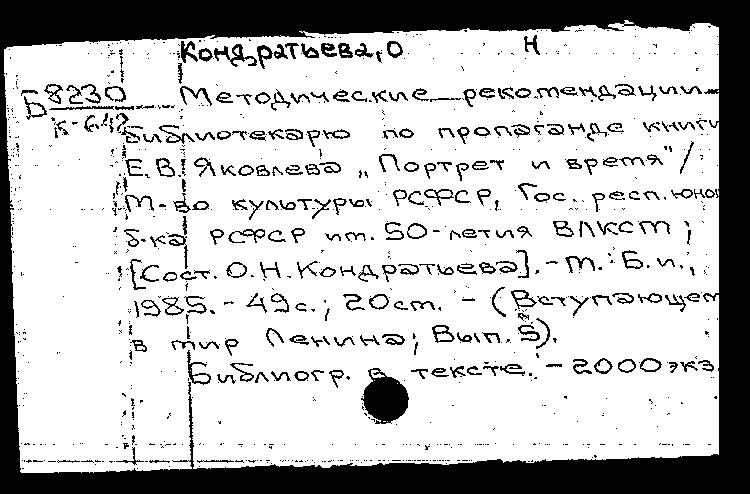 Кондратьева, О Н
Б 8230 Методические рекомендации
К-642 библиотекарю по пропаганде книги
Е.В. Яковлева „Портрет и время"/
М-во культуры РСФСР, Гос. респ. юнош
б-ка РСФСР им. 50-летия ВЛКСМ;
[Сост. О.Н. Кондратьева]. - М.: Б.и.,
1985. - 49с.; 20см. - (Вступающем
в мир Ленина; Вып. 5).
Библиогр. в тексте. - 2000 экз.